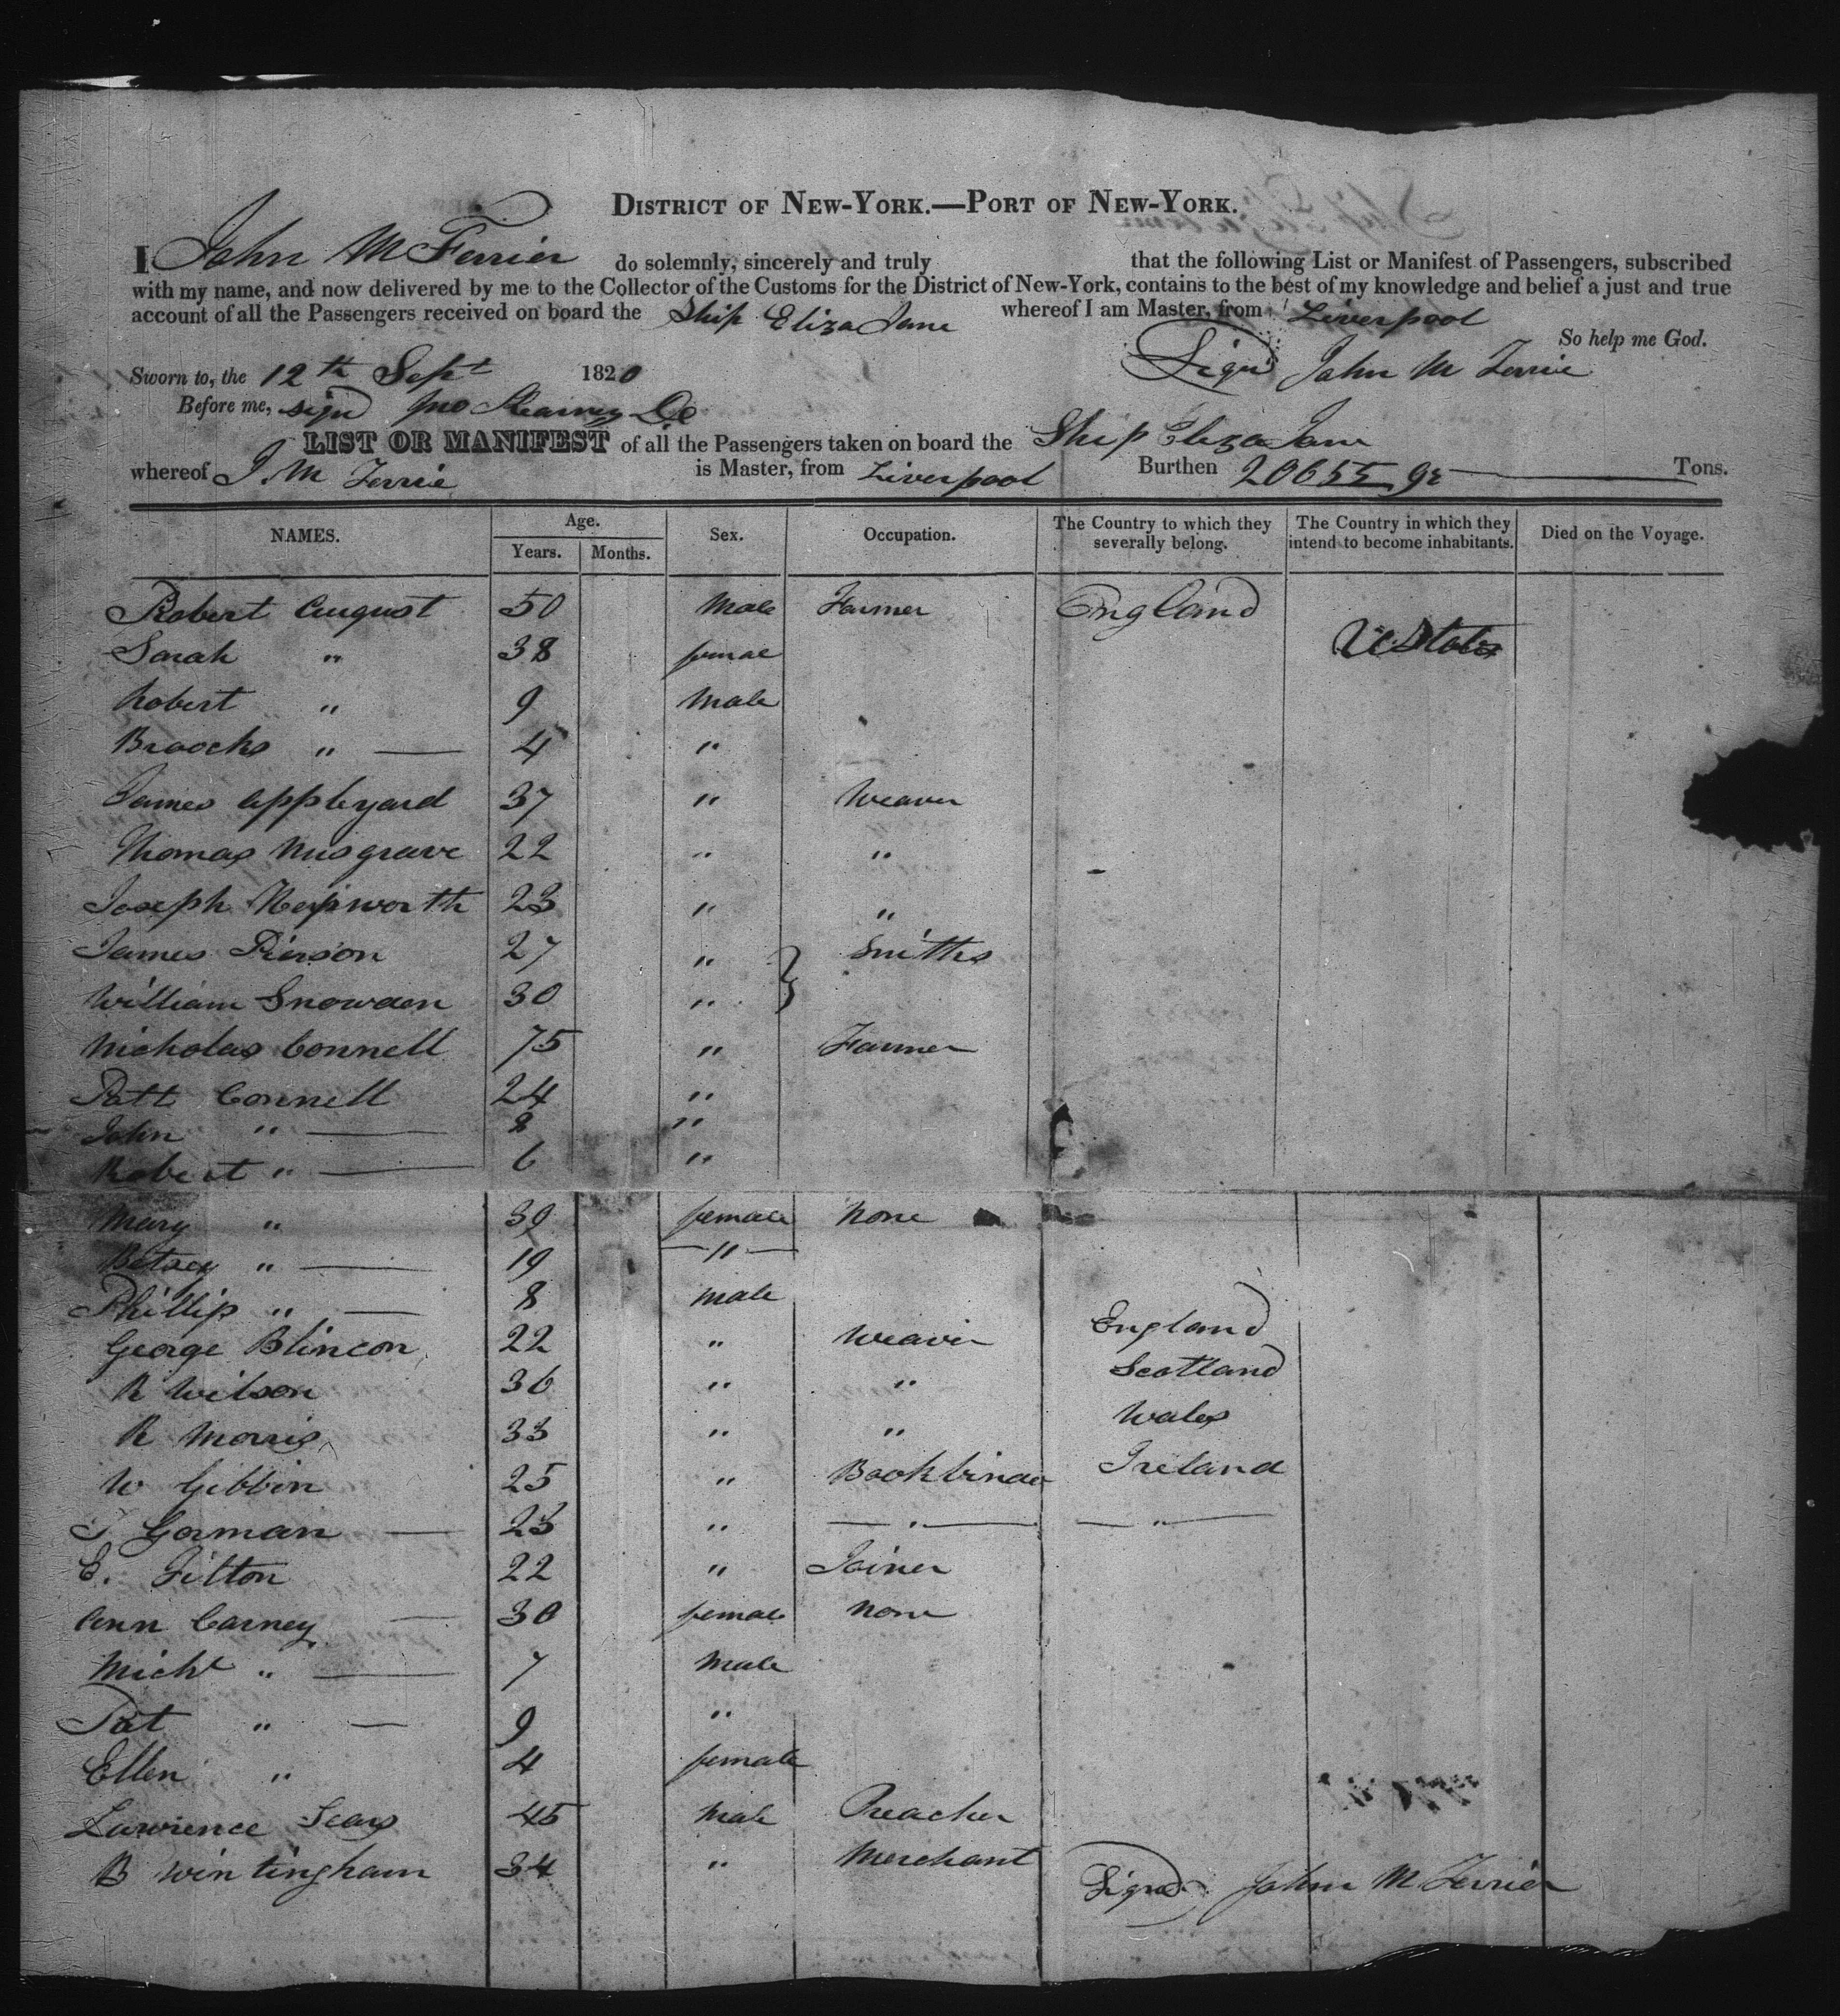 DISTRICT OF NEW-YORK.—PORT OF NEW-YORK.
I John McFerrier do solemnly, sincerely and truly that the following List or Manifest of Passengers, subscribed
with my name, and now delivered by me to the Collector of the Customs for the District of New-York, contains to the best of my knowledge and belief a just and true
account of all the Passengers received on board the Ship Eliza Jane whereof I am Master, from Liverpool
So help me God.
Sworn to, the 12th Sept 1820 Signd John M Ferrie
Before me, signd Jno
LIST OR MANIFEST of all the Passengers taken on board the Ship Eliza Jane
whereof J. M Ferrie is Master, from Liverpool Burthen Tons.
NAMES. Age. Sex. Occupation. The Country to which they severally belong. The Country in which they intend to become inhabitants. Died on the Voyage.
Years. Months.
Robert August 50 Male Farmer England
Sarah " 38 female U States
Robert " 9 Male
Broocks " — 4 "
James Appleyard 37 " Weaver
Thomas Musgrave 22 " "
Joseph Hepworth 23 " "
James Pierson 27 " } Smiths
William Snowden 30 "
Nicholas Connell 75 " Farmer
Patt Connell 24 "
John " — 8 "
Robert " — 6 "
Mary " 39 female None
Betsey " — 19 — " —
Phillip " — 8 male
George Blincon 22 " Weaver England
R Wilson 36 " " Scotland
R Morris 33 " " Wales
W Gibbin 25 " Bookbinder Ireland
Gorman — 23 " — " — — " —
E. Fitton 22 " Joiner
Ann Carney — 30 female None
Michl " — 7 Male
Pat " — 9 "
Ellen " 4 female
Lawrence Sears 45 Male Preacher
B Wintingham 34 " Merchant
Signd John M Ferrier